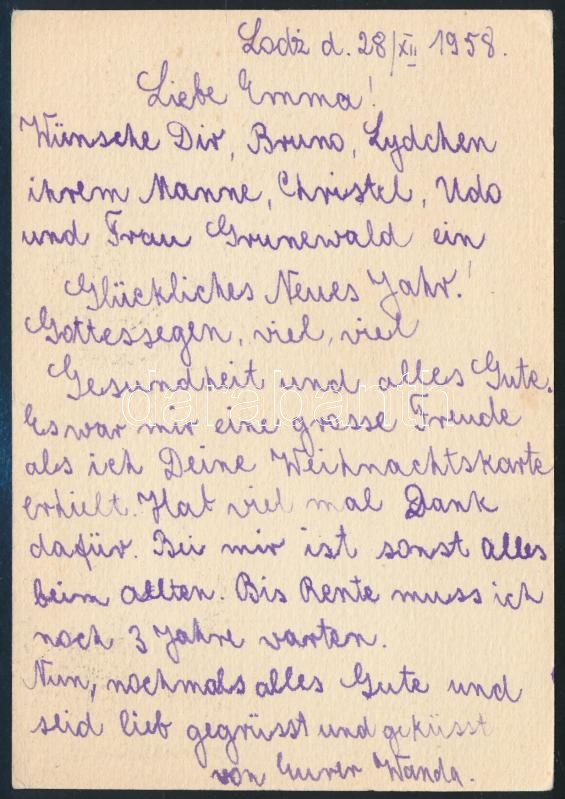 Lodź d. 28/XII 1958.
Liebe Emma!
Wünsche Dir, Bruno, Lydchen
ihrem Manne, Christel, Udo
und Frau Grunewald ein
Glückliches Neues Jahr!
Gottessegen, viel, viel
Gesundheit und alles Gute.
Es war mir eine grosse Freude
als ich Deine Weihnachtskarte
erhielt. Hat viel mal Dank
dafür. Bei mir ist sonst alles
beim allten. Bis Rente muss ich
noch 3 Jahre warten.
Nun, nochmals alles Gute und
seid lieb gegrüsst und geküsst
von Eurer Wanda.
darabanth